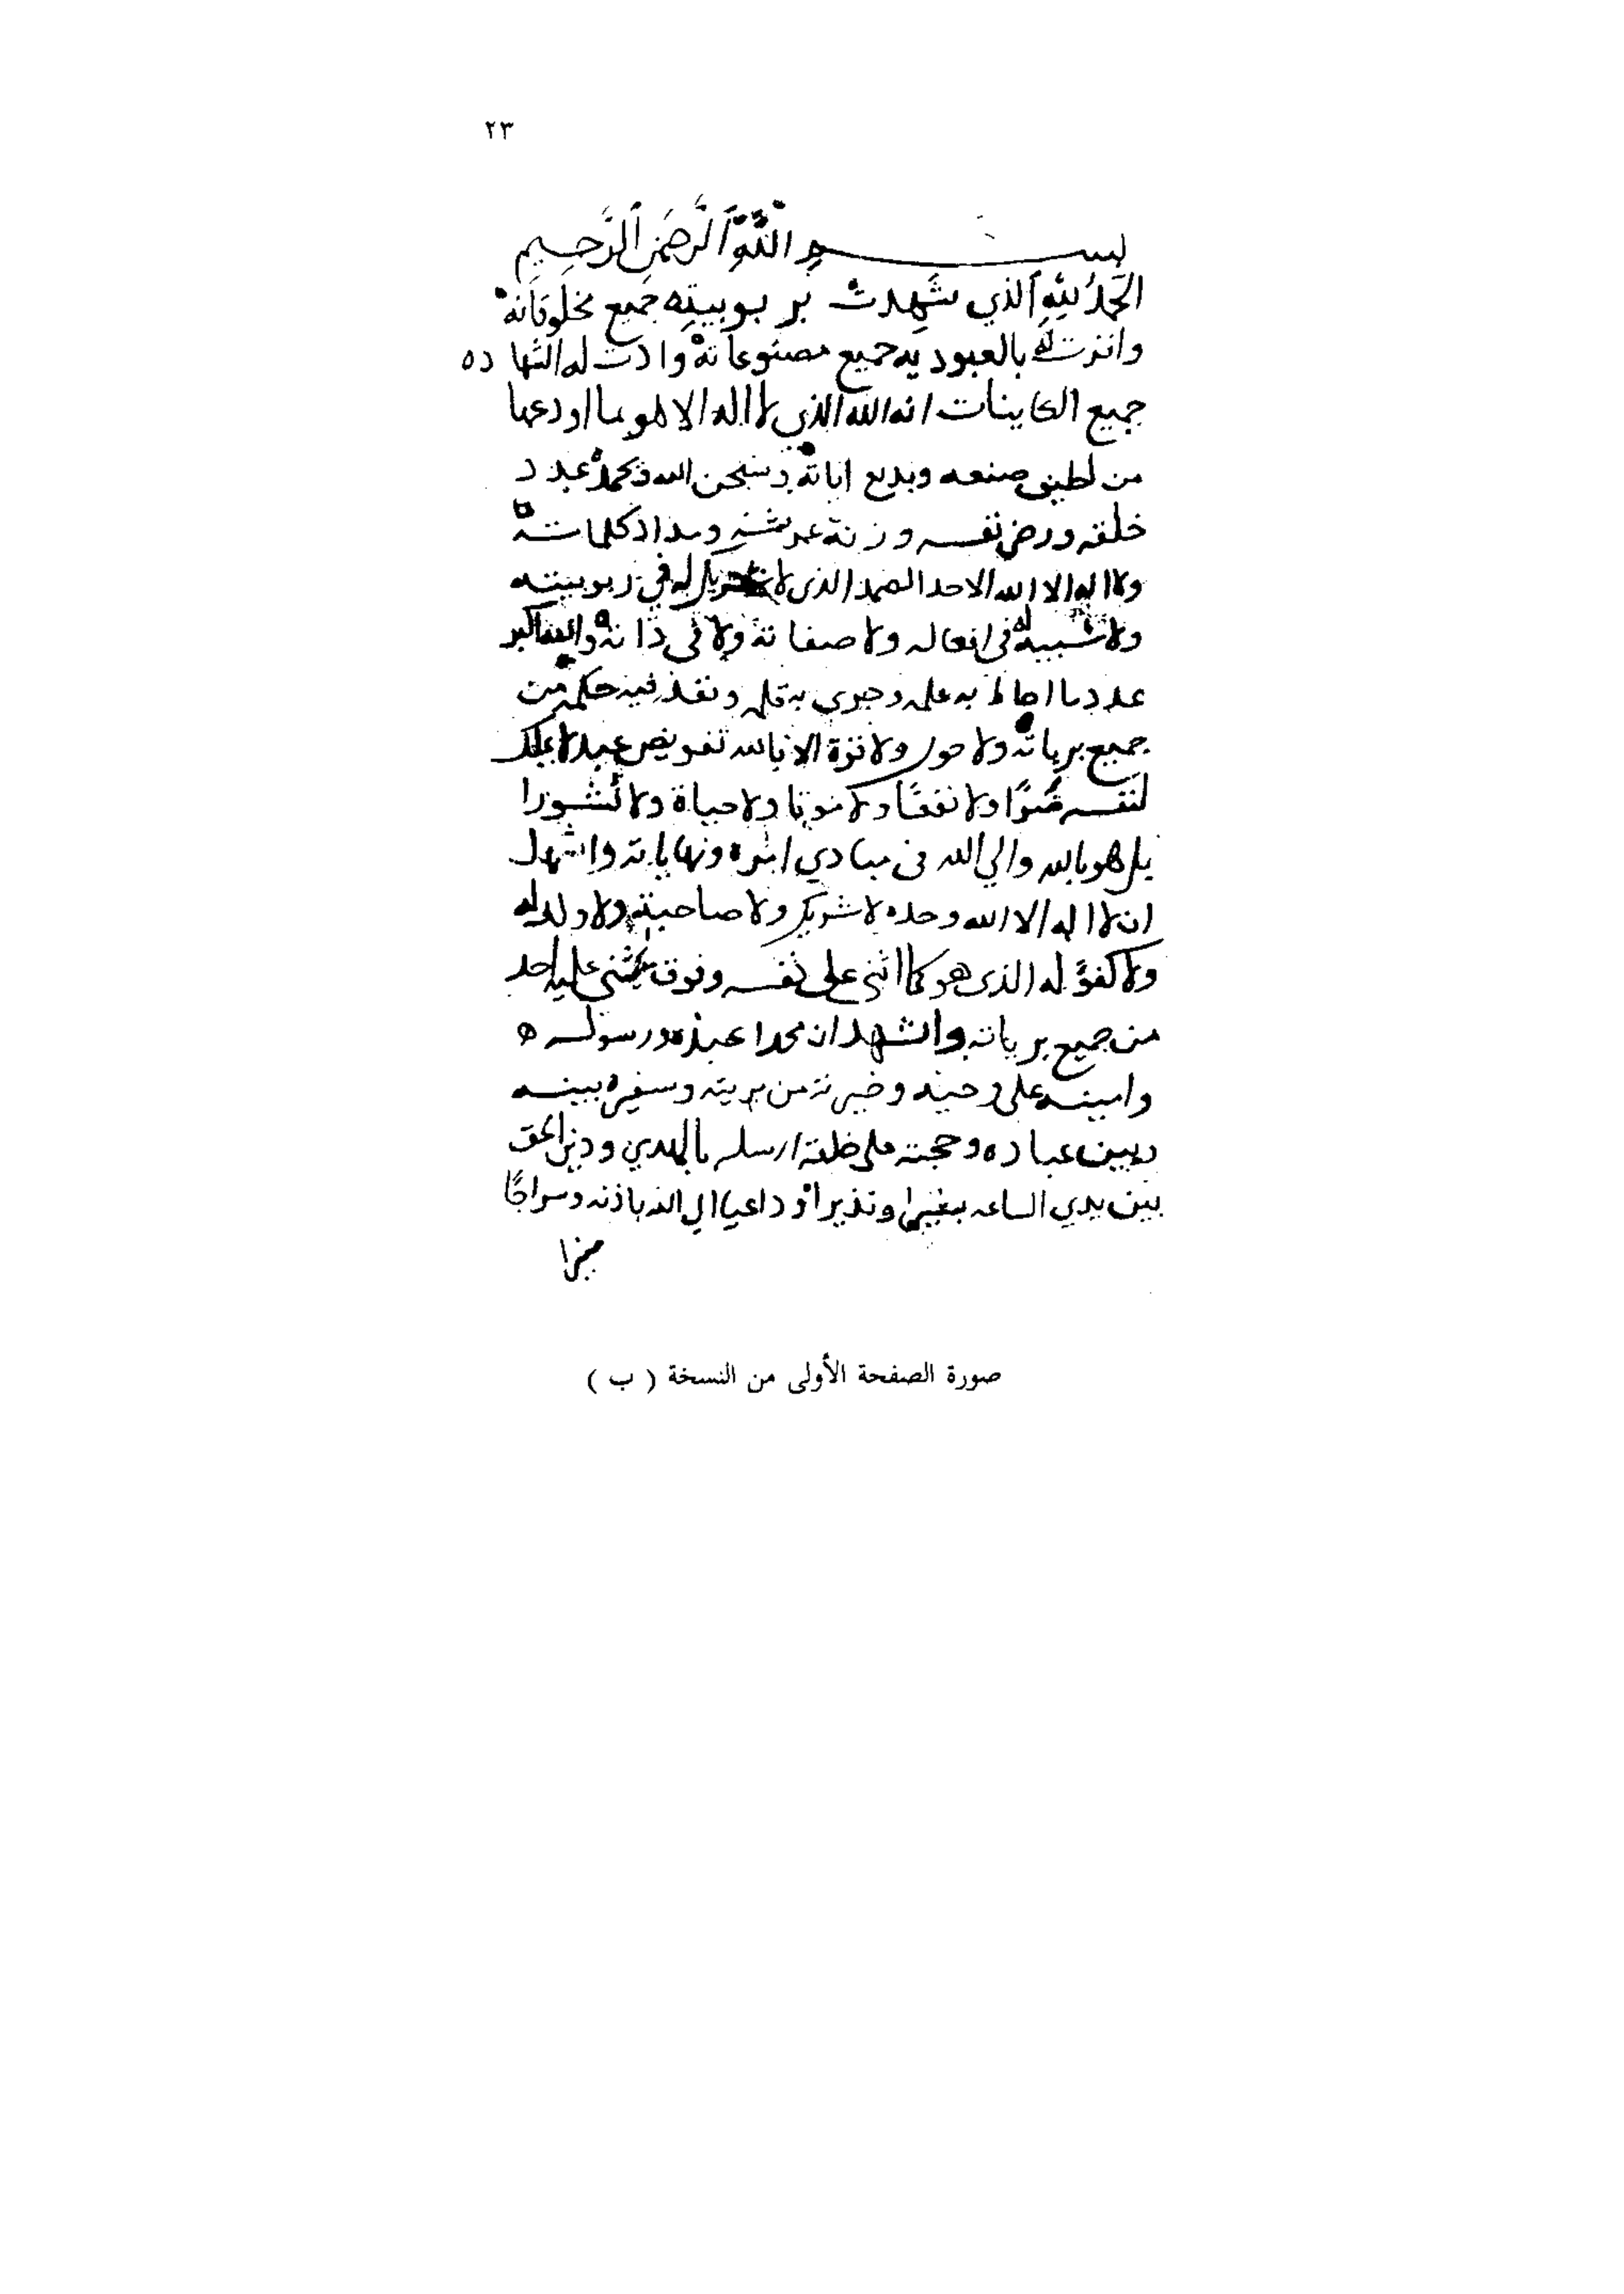 ٢٣
بسم الله الرحمن الرحيم
الحمد لله الذي شهدت بربوبيته جميع مخلوقاته
واقرت له بالعبوديه جميع مصنوعاته وادت له الشهاده
جميع الكاينات انه الله الذي لا اله الا هو بما اودعها
من لطيف صنعه وبديع اياته وسبحن الله وبحمده عدد
خلقه ورضى نفسه وزنة عرشه ومداد كلماته
ولا اله الا الله الاحد الصمد الذى لا شريك له في ربوبيته
ولا شبيه له في افعاله ولا صفاته ولا في ذاته والله اكبر
عدد ما احاط به علمه وجرى به قلمه ونفذ فيه حكمه من
جميع برياته ولا حول ولا قوة الا بالله تفويض عبد لا يملك
لنفسه ضرًا ولا نفعًا ولا موتا ولا حياة ولا نشورا
بل هو بالله والي الله في مبادي امره ونهاياته واشهد
ان لا اله الا الله وحده لا شريك له ولا صاحبة له ولا ولد له
ولا كفؤ له الذى هو كما اثنى على نفسه وفوق ما يثني عليه احد
من جميع برياته واشهد ان محمدا عبده ورسوله
وامينه على وحيه وخيرته من بريته وسفيره بينه
وبين عباده وحجته على خلقه ارسله بالهدي ودين الحق
بين يدي الساعه بشيرا ونذيرا وداعيا الي الله باذنه وسراجًا
منيرا
صورة الصفحة الأولى من النسخة ( ب )